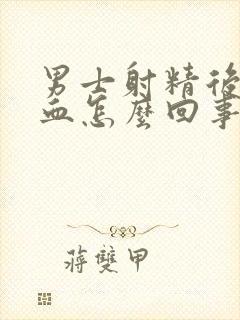 男士射精後
血怎麼回事
蔣雙甲